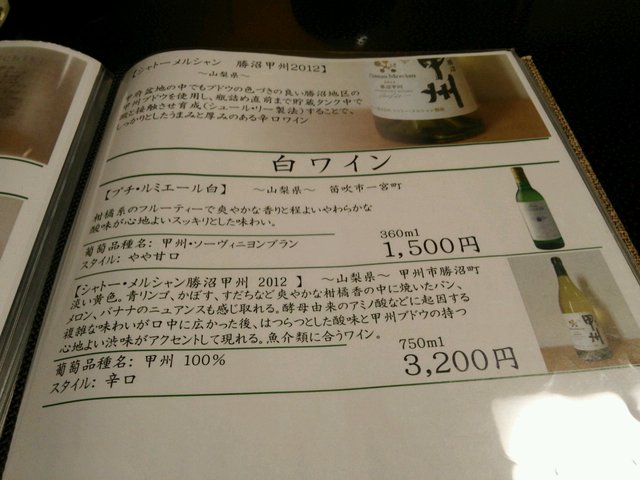 【シャトーメルシャン 勝沼甲州2012】
～山梨県～
甲府盆地の中でもブドウの色づきの良い勝沼地区の
甲州ブドウを使用し、瓶詰め直前まで貯蔵タンク中で
澱と接触させ育成(シュール・リー製法)することで、
しっかりとしたうまみと厚みのある辛口ワイン
甲州
白ワイン
【プチ・ルミエール白】 ～山梨県～ 笛吹市一宮町
柑橘系のフルーティーで爽やかな香りと程よいやわらかな
酸味が心地よいスッキリとした味わい。
360ml
葡萄品種名: 甲州・ソーヴィニヨンブラン
1,500円
スタイル: やや甘口
【シャトー・メルシャン勝沼甲州 2012 】 ～山梨県～ 甲州市勝沼町
淡い黄色。青リンゴ、かぼす、すだちなど爽やかな柑橘香の中に焼いたパン、
メロン、バナナのニュアンスも感じ取れる。酵母由来のアミノ酸などに起因する
複雑な味わいが口中に広かった後、はつらつとした酸味と甲州ブドウの持つ
心地よい渋味がアクセントして現れる。魚介類に合うワイン。
750ml
葡萄品種名: 甲州 100%
3,200円
スタイル: 辛口
甲州